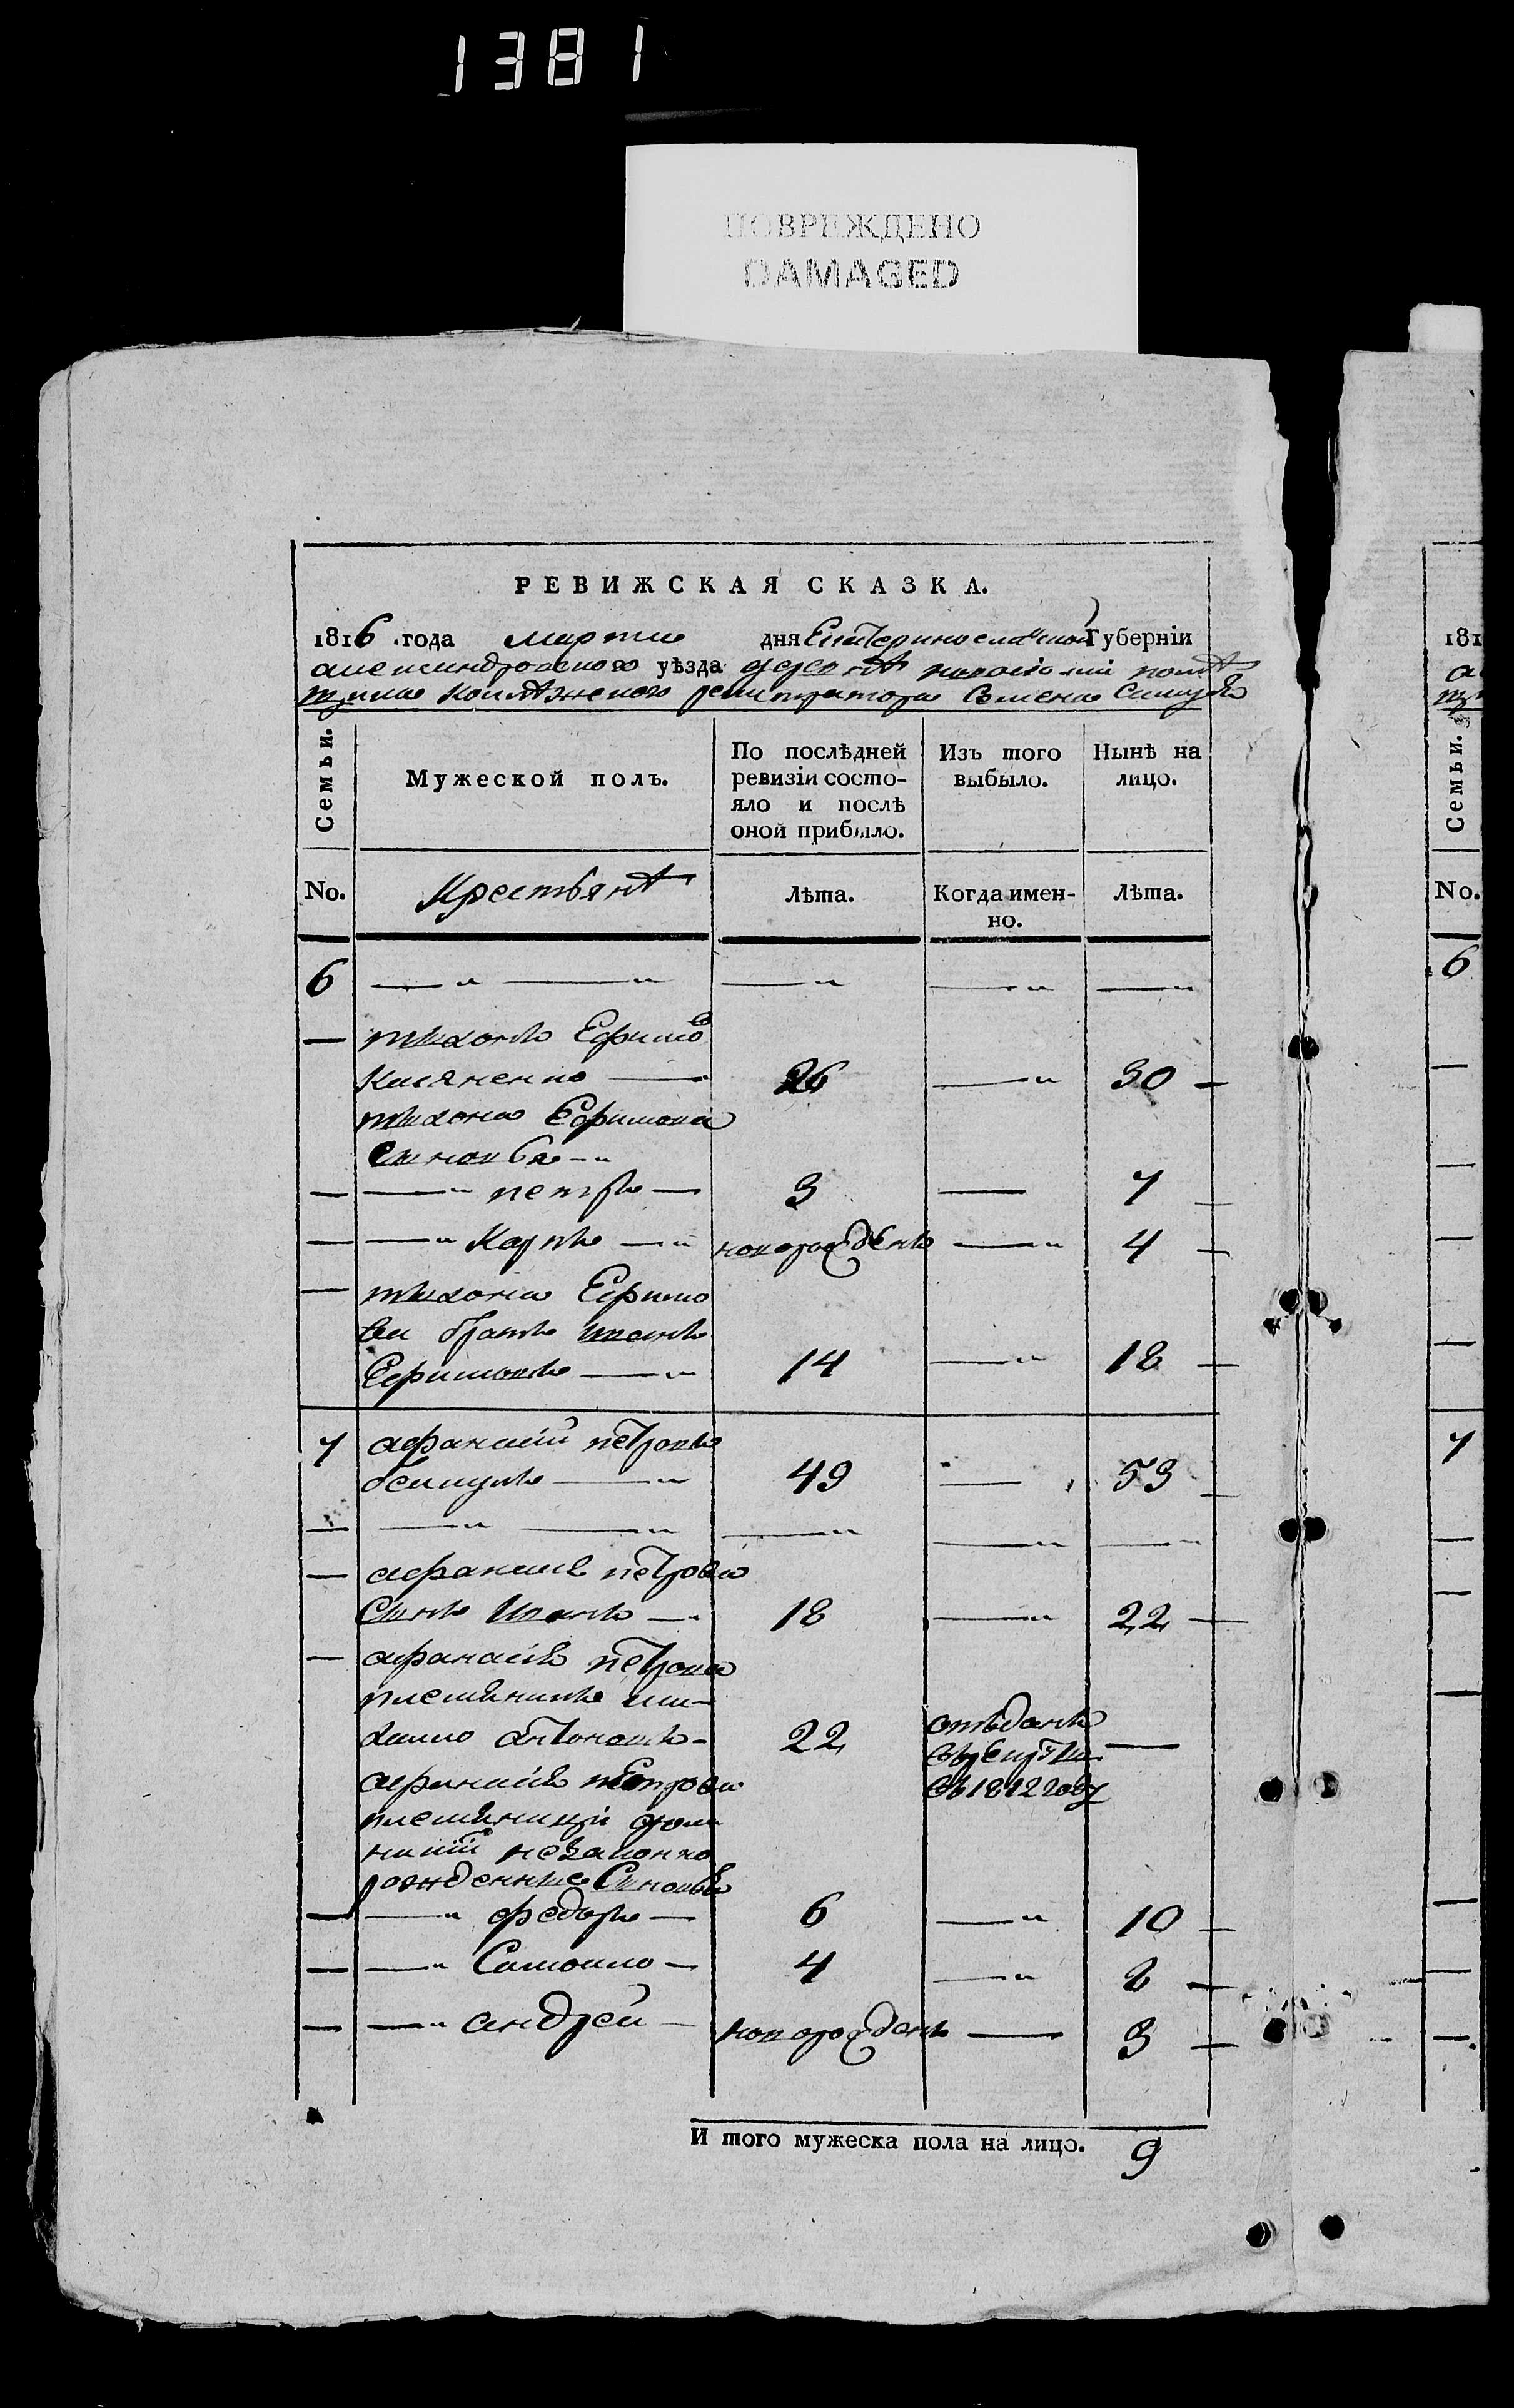 1381
ПОВРЕЖДЕНО
DAMAGED
РЕВИЖСКАЯ СКАЗКА.
1816 года марта дня Екатеринославской Губернїи
александровского уѣзда поме
щика колѣжского регистратора Семена
Семьи.
Мужеской полъ.
По послѣдней ревизїи состо-
яло и послѣ
оной прибыло.
Изъ того
выбыло.
Нынѣ на
лицо.
No.
Крестьянѣ
Лѣта.
Когда имен-
но.
Лѣта.
6 — „ — „ — „ — „ — „
— тихонъ Ефимовъ
Касяненко — 26 — „ 30 —
тихона Ефимова
Сыновья — „
— — „ петръ — 3 — 7 —
— — „ Карпъ — „ новорожденъ — „ 4 —
— тихона Ефимо
ва братъ иванъ
Ефимовъ — „ 14 — „ 18 —
7 афанасій петровъ
— „ 49 — 53 —
— — „ — „ — „ — „ — „
— афанасія петрова
Сынъ Иванъ — „ 18 — „ 22 —
— афанасія петрова
племяникъ ми-
хайло антоновъ — 22 отъданъ
въ рекруты
въ 1812 году —
афанасія петрова
племяницы
незаконно
рожденные Сыновья
— — „ федоръ — 6 — „ 10 —
— — „ Самойло — 4 — „ 8 —
— — „ андрей — новорожденъ — 3 —
И того мужеска пола на лицо. 9
181
Семьи.
No.
6
7